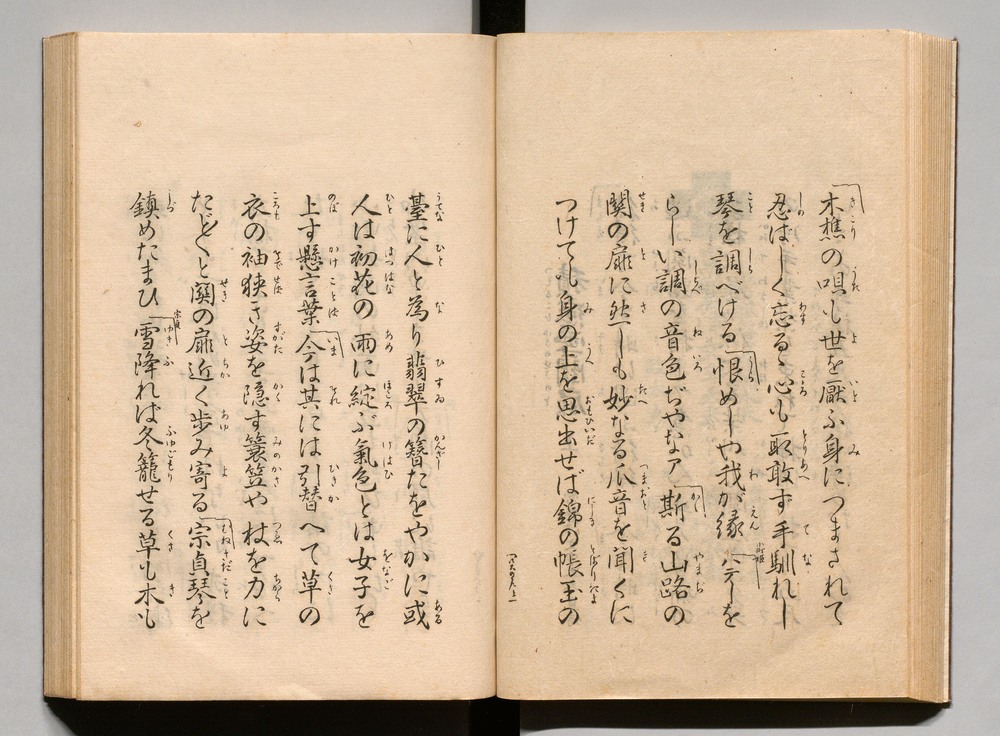 木樵の唄も世を厭ふ身につまされて
忍ばしく忘るゝ心も取敢ず手馴れし
琴を調べける「恨めしや我が縁「ハテしを
らしい調の音色ぢやなア「斯る山路の
関の扉に然しも妙なる爪音を聞くに
つけても身の上を思出せば錦の帳玉の
臺に人と為り翡翠の簪たをやかに或
人は初花の雨に綻ぶ氣色とは女子を
上す懸言葉「今は其には引替へて草の
衣の袖狭き姿を隠す簑笠や杖を力に
たど〳〵と関の扉近く歩み寄る「宗貞琴を
鎮めたまひ「雪降れば冬籠せる草も木も